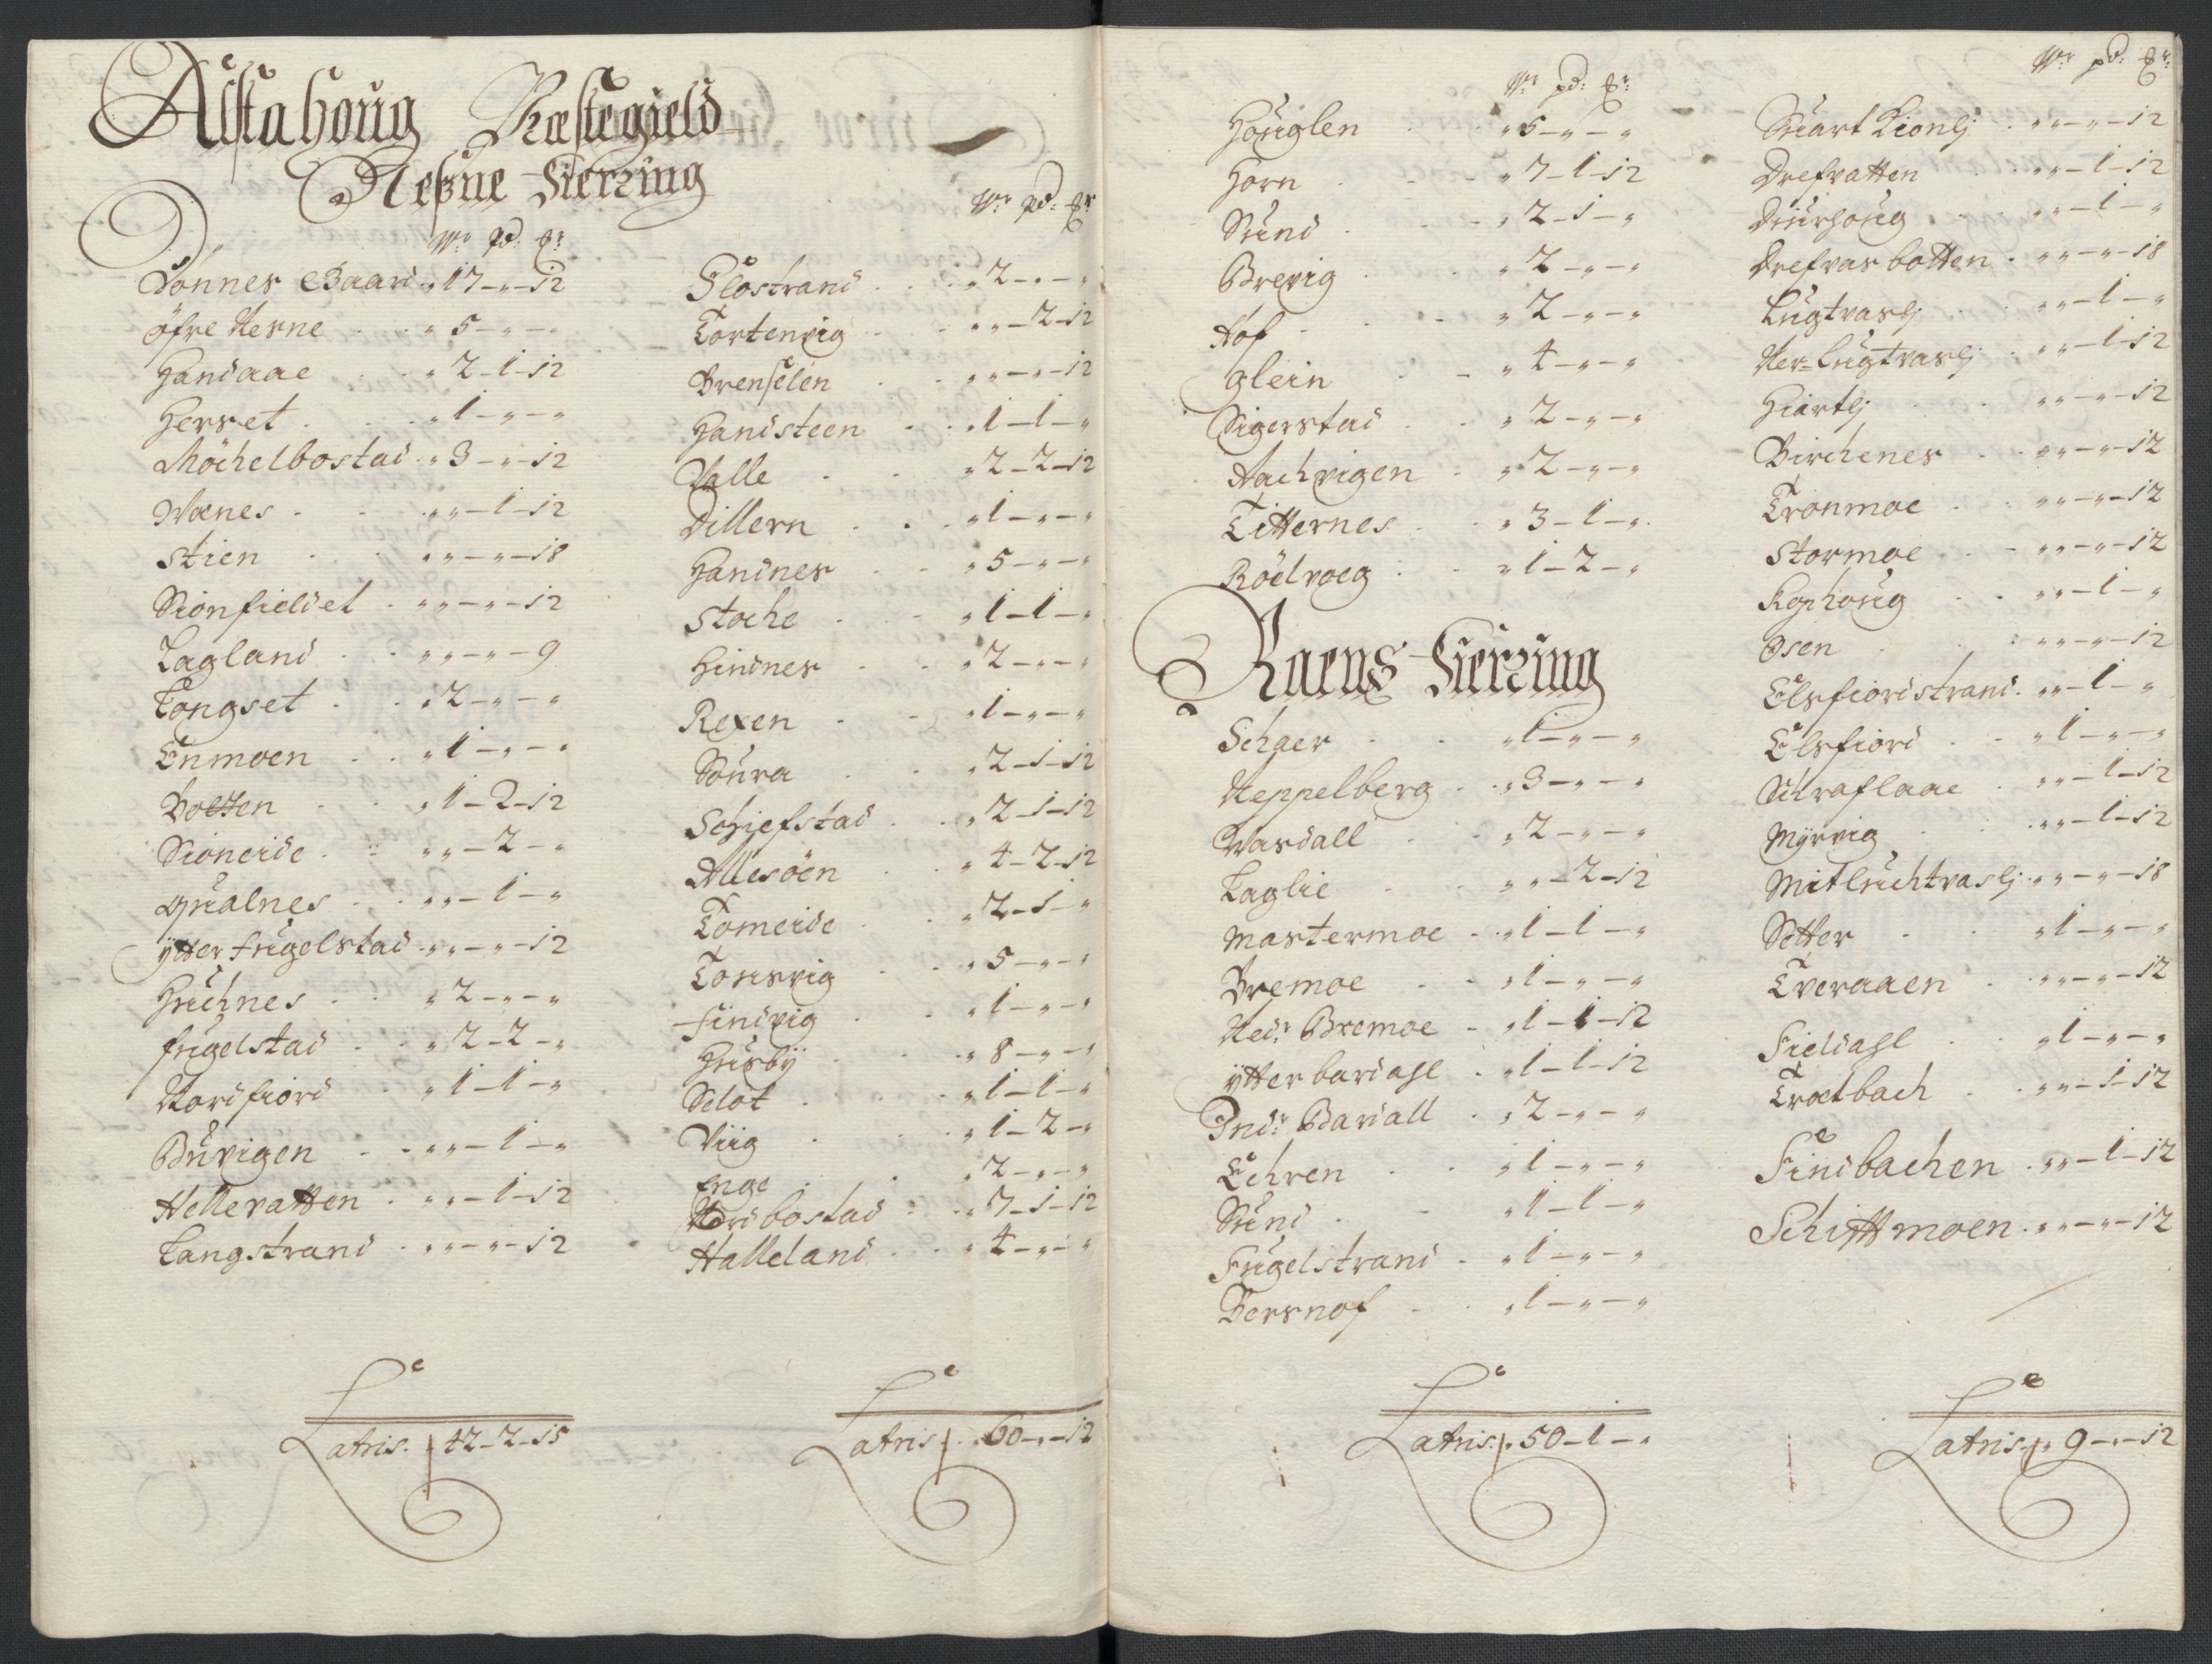 Alstahoug Præstegield
Nesne Fierring
W: pd: &:
Dønnes Gaard „ 17 - „ - 12
öfre Nesne „ 5 - „ - „
Handaae „ 2 - 1 - 12
Herset „ 1 - „ - „
Möchelbostad „ 3 - „ - 12
Wænes „ „ - 1 - 12
Stien „ „ - „ - 18
Sionfieldet „ „ - „ - 12
Lagland „ „ - „ - 9
Longset „ 2 - „ - „
Enmoen „ 1 - „ - „
Botten „ 1 - 2 - 12
Sioneide „ „ - 2 - „
qualnes „ „ - 1 - „
ÿtter fugelstad „ „ - „ - 12
Huchnes „ 2 - „ - „
fugelstad „ 2 - 2 - „
Nordfiord „ 1 - 1 - „
Buvigen „ „ - 1 - „
Hellevatten „ „ - 1 - 12
Langstrand „ „ - „ - 12
Latris „ 42 - 2 - 15
W: pd: &:
Flostrand „ 2 - „ - „
Tortenvig „ „ - 2 - 12
Brenselen „ „ - „ - 12
Handsteen „ 1 - 1 - „
Valle „ 2 - 2 - 12
Dillern „ 1 - „ - „
Handnes „ 5 - „ - „
Stoche „ 1 - 1 - „
Hindnes „ 2 - „ - „
Rexen „ 1 - „ - „
Soura „ 2 - 1 - 12
Schiefstad „ 2 - 1 - 12
Allesöen „ 4 - 2 - 12
Tomeide „ 2 - 1 - „
Tomsvig „ 5 - „ - „
Findvig „ 1 - „ - „
Husbÿ „ 8 - „ - „
Selot „ 1 - 1 - „
Viig „ 1 - 2 - „
Enge „ 2 - „ - „
Nordbostad „ 7 - 1 - 12
Halleland „ 4 - „ - „
Latris „ 60 - „ - 12
W: pd: &:
Houglen „ 5 - „ - „
Horn „ 7 - 1 - 12
Sund „ 2 - 1 - „
Brevig „ 2 - „ - „
Hof „ 2 - „ - „
glein „ 4 - „ - „
Sigerstad „ 2 - „ - „
Aachvigen „ 2 - „ - „
Titternes „ 3 - 1 - „
Rödvoeg „ 1 - 2 - „
Raens Fierring
Schaer „ 1 - „ - „
Neppelberg „ 3 - „ - „
Wasdall „ 2 - „ - „
Laglie „ „ - 2 - 12
Mastermoe „ 1 - 1 - „
Bremoe „ 1 - „ - „
Nedr Bremoe „ 1 - 1 - 12
ÿtter bardahl „ 1 - 1 - 12
Indr Bardall „ 2 - „ - „
Echren „ 1 - „ - „
Sund „ 1 - 1 - „
Fugelstrand „ 1 - „ - „
Bersnof „ 1 - „ - „
Latris „ 50 - 1 - „
W: pd: &:
Suart Lionlj „ „ - „ - 12
Drefvatten „ „ - 1 - 12
Diurhoug „ „ - 1 - „
Drefvasbotten „ „ - „ - 18
Lugtvaslj „ „ - 1 - „
Ner=Lugtvaslj „ „ - 1 - 12
Hiartlj „ „ - „ - 12
Birchenes „ „ - „ - 12
Tronmoe „ „ - „ - 12
Stormoe „ „ - „ - 12
Kophoug „ „ - 1 - „
Osen „ „ - „ - 12
Elsfiordstrand „ „ - 1 - „
Elsfiord „ 1 - „ - „
Schraflaae „ „ - 1 - 12
Mÿrvig „ „ - 1 - 12
Mitluchtvaslj „ „ - „ - 18
Setter „ 1 - „ - „
Tveraaen „ „ - „ - 12
Fieldahl „ 1 - „ - „
Troelbach „ „ - 1 - 12
Findbachen „ „ - 1 - 12
Schittmoen „ „ - „ - 12
Latris „ 9 - „ - 12